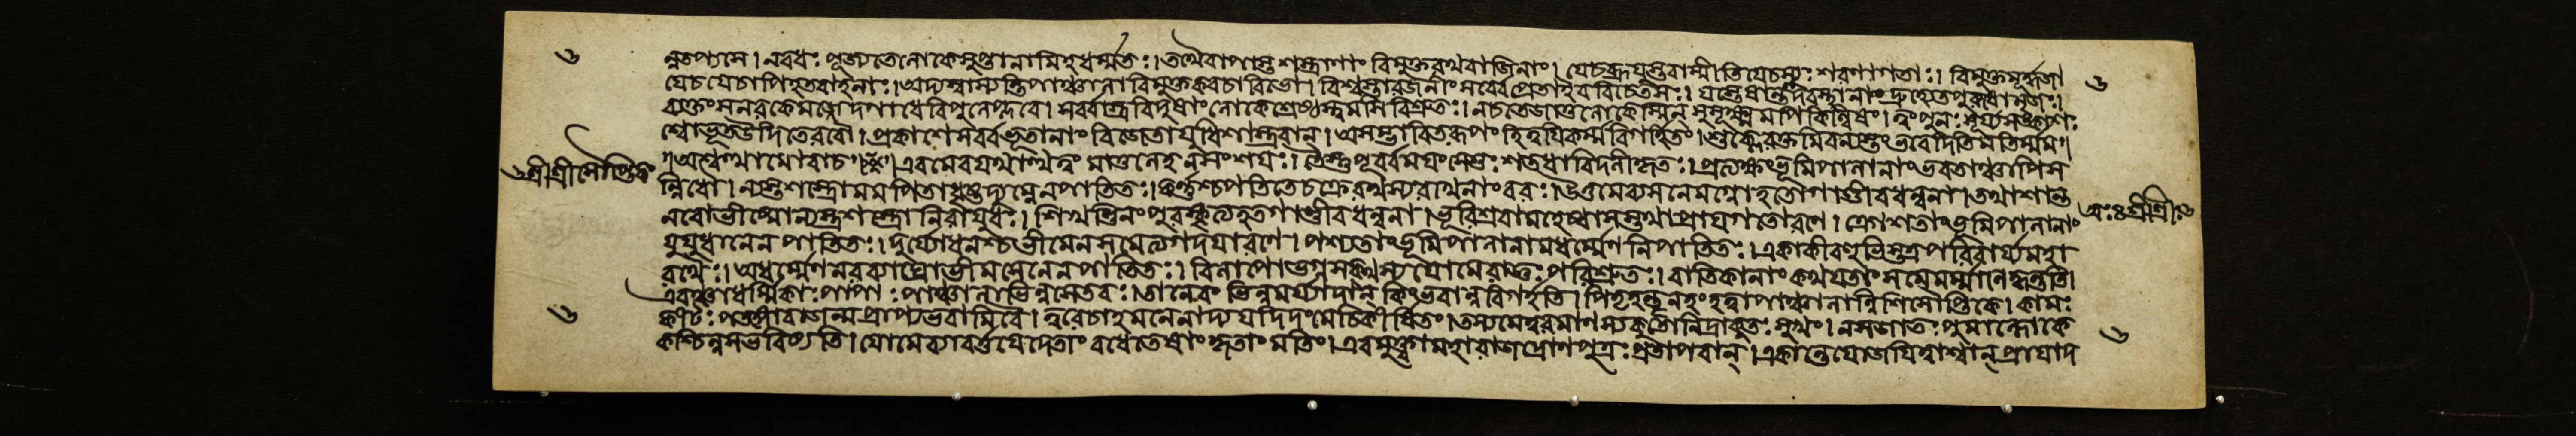 ন্নতপ্যসে। নবধঃ পূজ্যতেলোকেসুপ্তানামিহধর্ম্মতঃ। তথৈবাপাস্ত শস্ত্রাণাং বিমুক্তরথবাজিনাং। যেচব্রূযুস্তবাস্মীতিযেচস্যুঃ শরণাগতাঃ। বিমুক্তমূর্দ্ধজা
যেচযেচাপিহতবাহনাঃ। অদ্যস্বপ্স্যন্তিপাঞ্চালাবিমুক্তকবচাবিভো। বিশ্বস্তারজনীং সর্বেপ্রেতাইববিচেতসঃ। যস্তেষান্তদবস্থানাং দ্রুহ্যেতপুরুষোঽনৃজুঃ।
ব্যক্তং সনরকেমজ্জেদগাধেবিপুলেপ্লবে। সর্বাস্ত্রবিদুষাং লোকেশ্রেষ্ঠস্ত্বমসিবিশ্রুতঃ। নচতেজাতুলোকেস্মিন্ সুসূক্ষ্মমপিকিল্বিষং। ত্বং পুনঃ সূর্য্যসঙ্কাশঃ
শ্বোভূতউদিতেরবৌ। প্রকাশেসর্বভূতানাং বিজেতাযুধিশাত্রবান্। অসম্ভাবিতরূপং হিত্বযিকর্ম্মবিগর্হিতং। শুক্লেরক্তমিবন্যস্তং ভবেদিতিমতির্ম্মম॥
॥অশ্বত্থামোবাচ॥ এবমেবযথাত্থত্বং মাতুলেহ নসংশযঃ। তৈস্তুপূর্বমযং সেতুঃ শতধাবিদলীকৃতঃ। প্রত্যক্ষং ভূমিপালানাং ভবতাঞ্চাপিস
ন্নিধৌ। ন্যস্তশস্ত্রোমমপিতাধৃষ্টদ্যুম্নেনপাতিতঃ। কর্ণশ্চপতিতেচক্রেরথস্যরথিনাং বরঃ। উত্তমেব্যসনেমগ্নোহতোগাণ্ডীবধন্বনা। তথাশান্ত
নবোভীষ্মোন্যস্তশস্ত্রোনিরাযুধঃ। শিখণ্ডিনং পুরস্কৃত্যহতগাণ্ডীবধন্বনা। ভূরিশ্রবামহেষ্বাসস্তথাপ্রাযগতোরণে। ক্রোশতাং ভূমিপালানাং
যুযুধানেনপাতিতঃ। দুর্য্যোধনশ্চভীমেনসমেত্যগদযারণে। পশ্যতাং ভূমিপালানামধর্ম্মেণনিপাতিতঃ। একাকীবহুভিস্তত্রপরিবার্য্যমহা
রথৈঃ। অধর্ম্মেণনরব্যাঘ্রোভীমসেনেনপাতিতঃ। বিলাপোভগ্নসক্থস্যযোমেরাজ্ঞঃ পরিশ্রুতঃ। বাতিকানাং কথযতাং সমেমর্ম্মাণিকৃন্ততি।
এবঞ্চাধর্ম্মিকাঃ পাপাঃ পাঞ্চালাভিন্নসেতবঃ। তানেবং ভিন্নমর্য্যাদান্ কিংভবান্নবিগর্হতি। পিতৃহন্তৄনহং হত্বাপাঞ্চালান্নিশিসৌপ্তিকে। কামং
কীটঃ পতঙ্গোবাজন্মপ্রাপ্যভবামিবৈ। ত্বরেচাহমনেনাদ্যযদিদং মেচিকীর্ষিতং। তস্যমেত্বরমাণস্যকুতোনিদ্রাকুতঃ সুখং। নসজাতঃ পুমাল্লোকে
কশ্চিন্নসভবিষ্যতি। যোমেব্যাবর্ত্তযেদেতাং বধেতেষাং কৃতাং মতিং। এবমুক্ত্বামহারাজদ্রোণপুত্রঃ প্রতাপবান্। একান্তেযোজযিত্বাশ্বান্ প্রাযাদ
শ্রীশ্রীসৌপ্তিকং
অঃ ৪ শ্রীশ্রীঃ